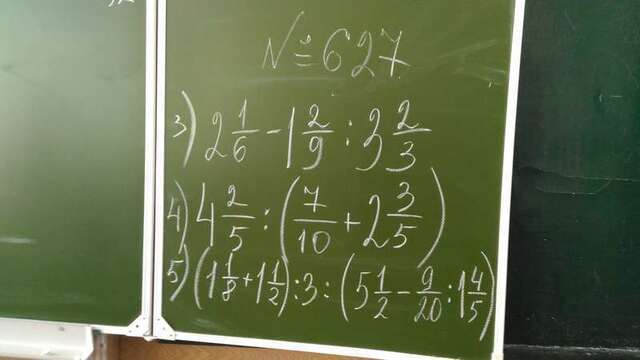 №627
3) 2 1/6 - 1 2/9 : 3 2/3
4) 4 2/5 : (7/10 + 2 3/5)
5) (1 1/8 + 1 1/2) : 3 : (5 1/2 - 9/20 : 1 4/5)